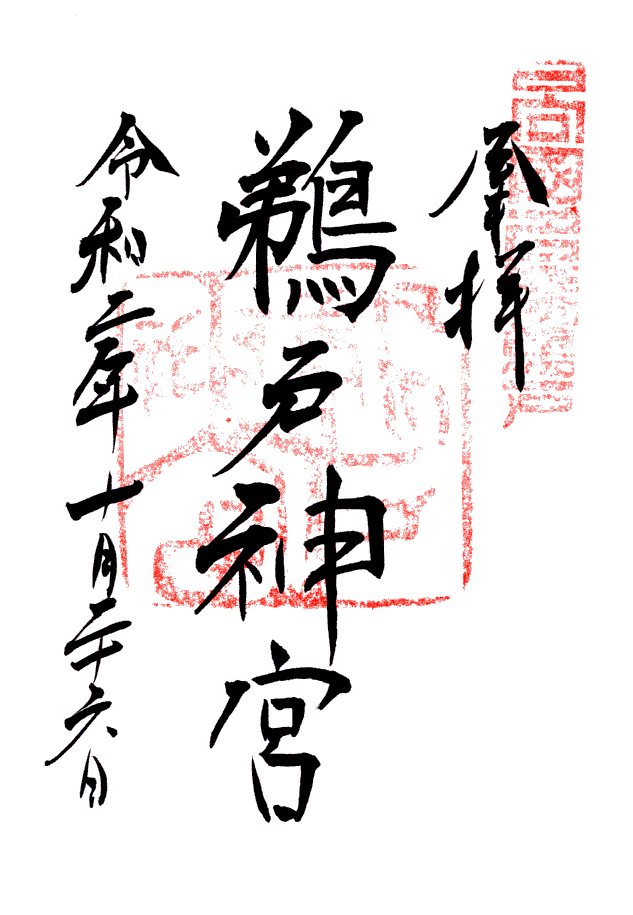 奉拝
鵜戸神宮
令和二年十月二十六日